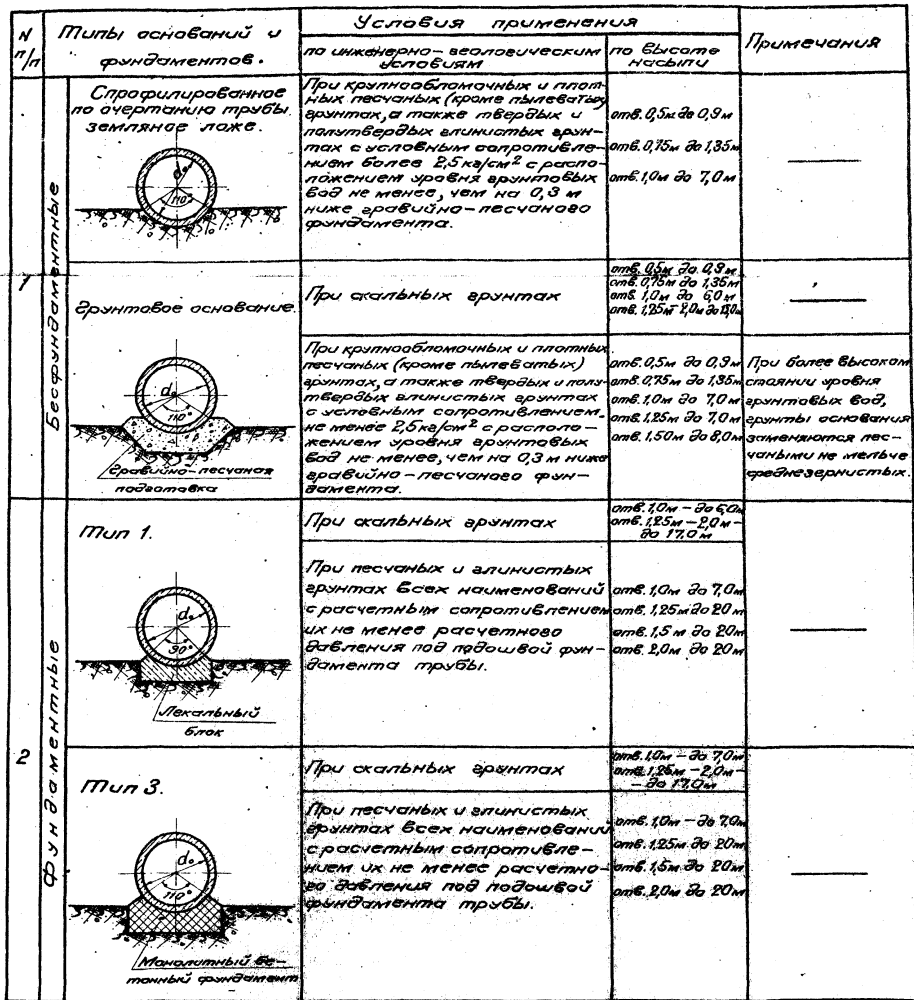 N п/п
Типы оснований и
фундаментов.
Условия применения
по инженерно-геологическим
условиям
по высоте
насыпи
Примечания
1
Бесфундаментные
Спрофилированное
по очертанию трубы
земляное ложе.
d₀
110°
При крупнообломочных и плот-
ных песчаных (кроме пылеватых)
грунтах, а также твердых и
полутвердых глинистых грун-
тах с условным сопротивле-
нием более 2,5 кг/см² с распо-
ложением уровня грунтовых
вод не менее, чем на 0,3 м
ниже гравийно-песчаного
фундамента.
отв. 0,5м до 0,9м
отв. 0,75м до 1,35м
отв. 1,0м до 7,0м
Грунтовое основание.
При скальных грунтах
отв. 0,5м до 0,9м
отв. 0,75м до 1,35м
отв. 1,0м до 6,0м
отв. 1,25м-2,0м до
d₀
110°
Гравийно-песчаная
подготовка
При крупнообломочных и плотных
песчаных (кроме пылеватых)
грунтах, а также твердых и полу-
твердых глинистых грунтах
с условным сопротивлением
не менее 2,5кг/см² с располо-
жением уровня грунтовых
вод не менее, чем на 0,3 м ниже
гравийно-песчаного фун-
дамента.
отв. 0,5м до 0,9м
отв. 0,75м до 1,35м
отв. 1,0м до 7,0м
отв. 1,25м до 7,0м
отв. 1,50м до 8,0м
При более высоком
стоянии уровня
грунтовых вод,
грунты основания
заменяются пес-
чаными не мельче
среднезернистых.
2
Фундаментные
Тип 1.
d₀
90°
Лекальный
блок
При скальных грунтах
отв. 1,0м - до 6,0м
отв. 1,25м - 2,0м -
до 17,0м
При песчаных и глинистых
грунтах всех наименований
с расчетным сопротивлением
их не менее расчетного
давления под подошвой фун-
дамента трубы.
отв. 1,0м до 7,0м
отв. 1,25м до 20м
отв. 1,5 м до 20м
отв. 2,0м до 20м
Тип 3.
d₀
110°
Монолитный бе-
тонный фундамент
При скальных грунтах
отв. 1,0м - до 7,0м
отв. 1,25м - 2,0м -
- до 17,0м
При песчаных и глинистых
грунтах всех наименований
с расчетным сопротивле-
нием их не менее расчетно-
го давления под подошвой
фундамента трубы.
отв. 1,0м - до 7,0м
отв. 1,25м до 20м
отв. 1,5м до 20м
отв. 2,0м до 20м